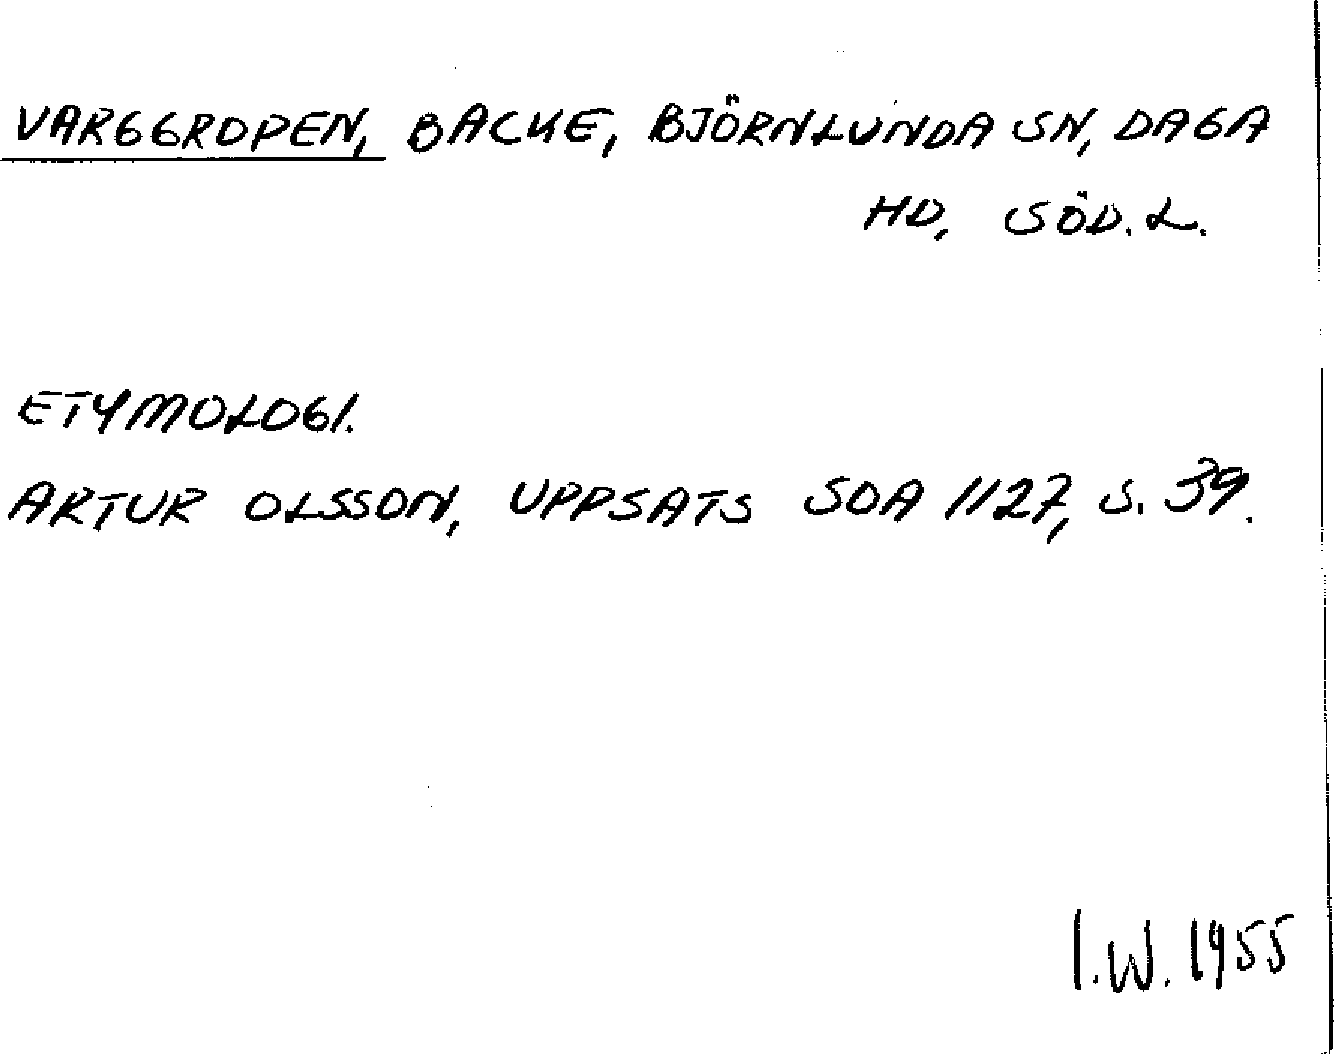 VARGGROPEN, BACKE, BJÖRNLUNDA SN, DAGA
HD, SÖD. L.
ETYMOLOGI.
ARTUR OLSSON, UPPSATS SOA 1127, S. 39.
I.W. 1955